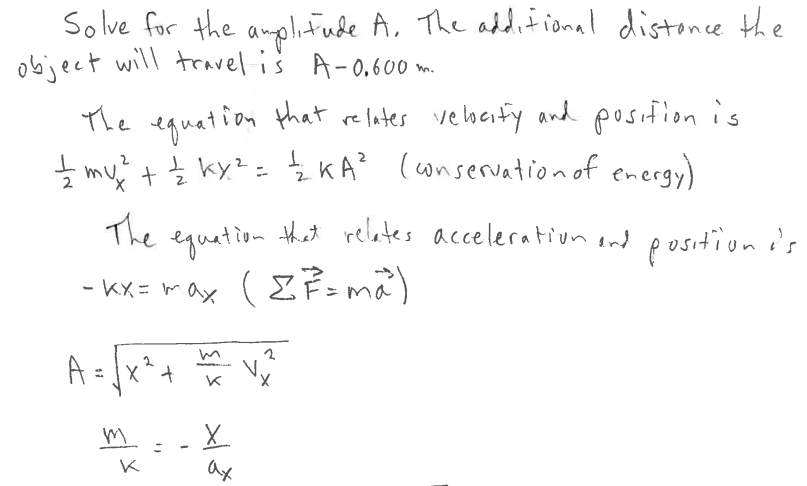 Solve for the amplitude A. The additional distance the
object will travel is A-0.600 m.
The equation that relates velocity and position is
½ mvₓ² + ½ kx² = ½ kA² (conservation of energy)
The equation that relates acceleration and position is
-kx = maₓ (ΣF⃗ = ma⃗)
A = √(x² + m/k vₓ²)
m/k = - x/aₓ